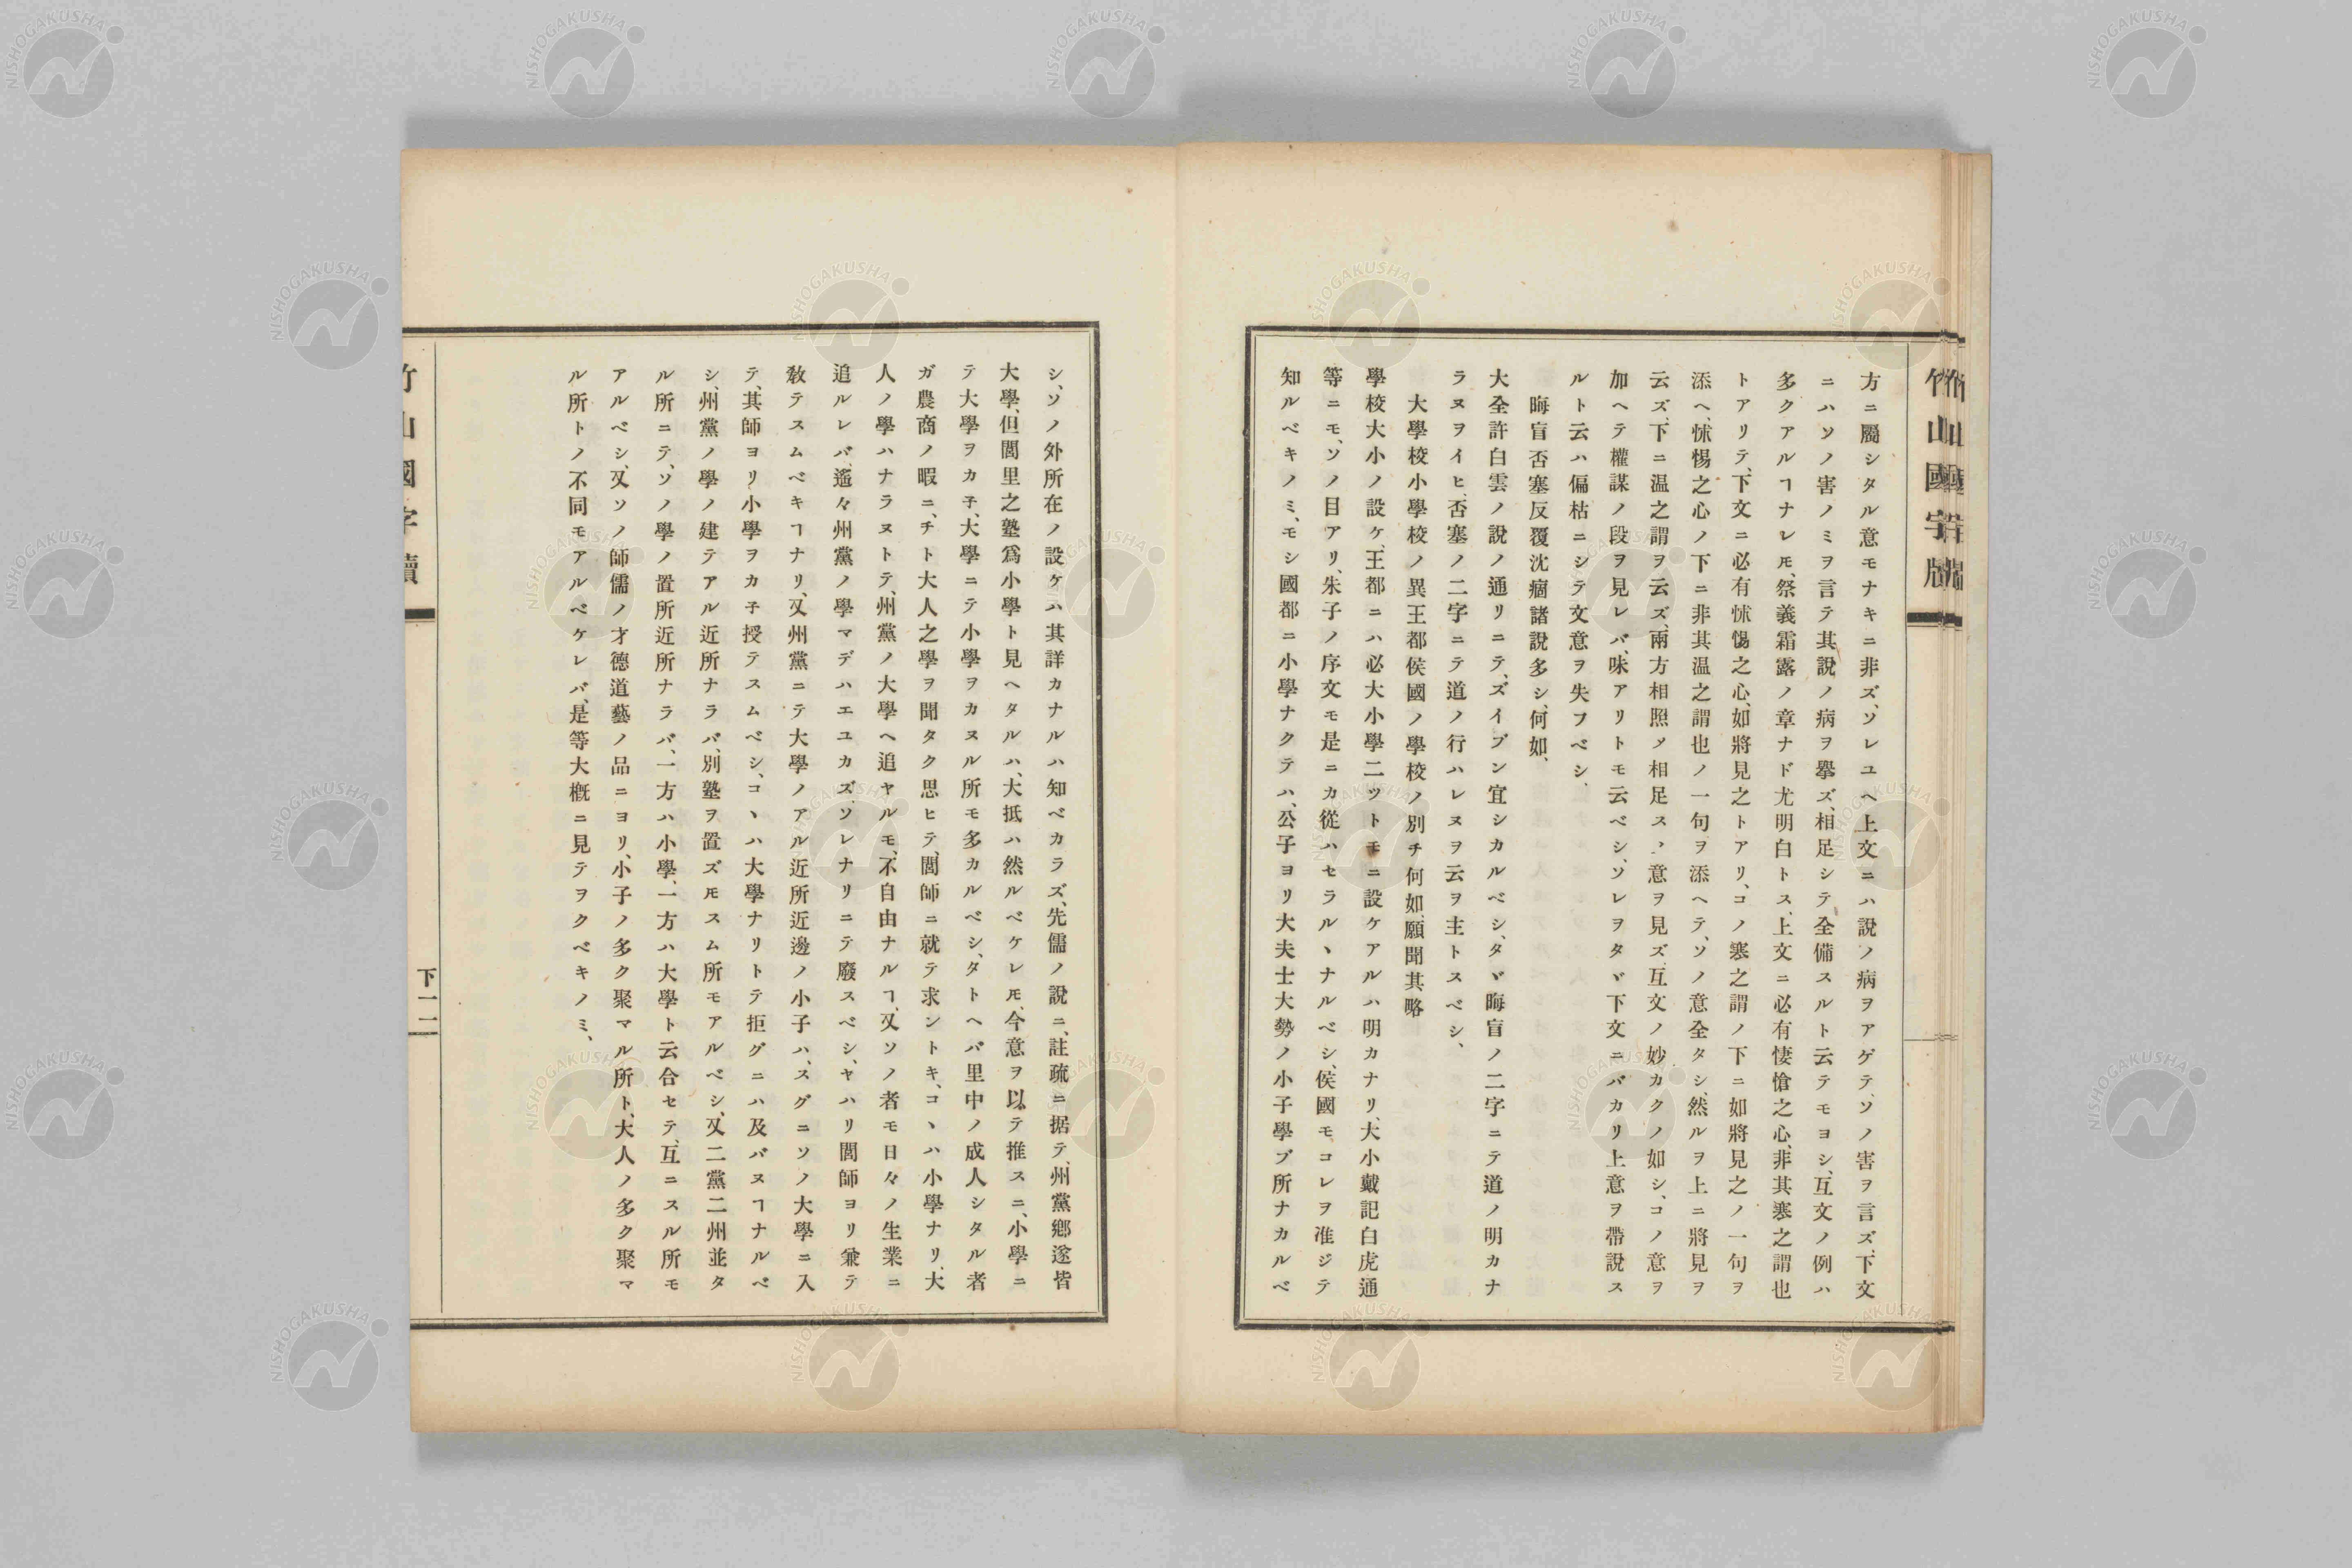 方ニ屬シタル意モナキニ非ズ、ソレユヘ上文ニハ說ノ病ヲアゲテ、ソノ害ヲ言ズ、下文
ニハソノ害ノミヲ言テ其說ノ病ヲ擧ズ、相足シテ全備スルト云テモヨシ、互文ノ例ハ
多クアルヿナレ𪜈、祭義霜露ノ章ナド尤明白トス、上文ニ必有悽愴之心、非其寒之謂也
トアリテ、下文ニ必有怵惕之心、如將見之トアリ、コノ寒之謂ノ下ニ如將見之ノ一句ヲ
添ヘ、怵惕之心ノ下ニ非其温之謂也ノ一句ヲ添ヘテ、ソノ意全タシ、然ルヲ上ニ將見ヲ
云ズ、下ニ温之謂ヲ云ズ、兩方相照メ相足スヽ意ヲ見ズ、互文ノ妙カクノ如シ、コノ意ヲ
加ヘテ權謀ノ段ヲ見レバ、味アリトモ云ベシ、ソレヲタヾ下文ニバカリ上意ヲ帶說ス
ルト云ハ偏枯ニシテ文意ヲ失フベシ、
晦盲否塞反覆沈痼諸說多シ、何如、
大全許白雲ノ說ノ通リニテ、ズイブン宜シカルベシ、タヾ晦盲ノ二字ニテ道ノ明カナ
ラヌヲイヒ、否塞ノ二字ニテ道ノ行ハレヌヲ云ヲ主トスベシ、
大學校小學校ノ異王都侯國ノ學校ノ別チ何如、願聞其略
學校大小ノ設ケ、王都ニハ必大小學二ツトモニ設ケアルハ明カナリ、大小戴記白虎通
等ニモ、ソノ目アリ、朱子ノ序文モ是ニカ從ハセラルヽナルベシ、侯國モコレヲ准ジテ
知ルベキノミ、モシ國都ニ小學ナクテハ、公子ヨリ大夫士大勢ノ小子學ブ所ナカルベ
シ、ソノ外所在ノ設ケハ其詳カナルハ知ベカラズ、先儒ノ說ニ、註疏ニ据テ、州黨鄕遂皆
大學、但閭里之塾爲小學ト見ヘタルハ、大抵ハ然ルベケレ𪜈、今意ヲ以テ推スニ、小學ニ
テ大學ヲカ子、大學ニテ小學ヲカヌル所モ多カルベシ、タトヘバ里中ノ成人シタル者
ガ農商ノ暇ニ、チト大人之學ヲ聞タク思ヒテ、閭師ニ就テ求ントキ、コヽハ小學ナリ、大
人ノ學ハナラヌトテ、州黨ノ大學ヘ追ヤルモ、不自由ナルヿ、又ソノ者モ日々ノ生業ニ
追ルレバ、遙々州黨ノ學マデハエユカズ、ソレナリニテ廢スベシ、ヤハリ閭師ヨリ兼テ
敎テスムベキヿナリ、又州黨ニテ大學ノアル近所近邊ノ小子ハ、スグニソノ大學ニ入
テ、其師ヨリ小學ヲカ子授テスムベシ、コヽハ大學ナリトテ拒グニハ及バヌヿナルベ
シ、州黨ノ學ノ建テアル近所ナラバ、別塾ヲ置ズ𪜈スム所モアルベシ、又二黨二州並タ
ル所ニテ、ソノ學ノ置所近所ナラバ、一方ハ小學、一方ハ大學ト云合セテ、互ニスル所モ
アルベシ、又ソノ師儒ノ才德道藝ノ品ニヨリ、小子ノ多ク聚マル所ト、大人ノ多ク聚マ
ル所トノ不同モアルベケレバ、是等大槪ニ見テヲクベキノミ、
竹山國字牘
下二二